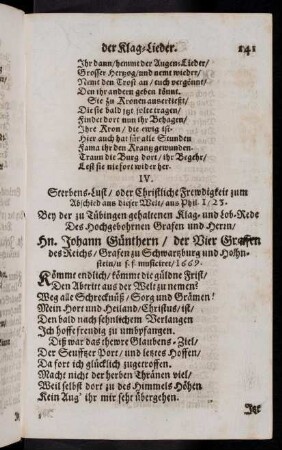 der Klag-Lieder. 141
Ihr dann/hemmt der Augen-Lieder/
Grosser Hertzog/und nemt wieder/
Nemt den Trost an / euch vergönnt/
Den ihr andern geben könnt.
Sie zu Kronen auserließt/
Die sie bald itzt solte tragen/
Findet dort nun ihr Behagen/
Ihre Kron / die ewig ist.
Hier auch hat für alle Stunden
Fama ihr den Krantz gewunden.
Traun die Burg dort / ihr Begehr/
Lest sie nie fort wider her.
IV.
Sterbens-Lust / oder Christliche Frewdigkeit zum
Abschied aus dieser Welt/ aus Phil. 1/23.
Bey der zu Tübingen gehaltenen Klag- und Lob-Rede
Des Hochgebohrnen Grafen und Herrn/
Hn. Johann Günthern / der Vier Graffen
des Reichs / Grafen zu Schwartzburg und Hohn-
stein/u f. f. musiciret/1669.
Kömmt endlich/ kömmt die güldne Frist/
Den Abtrit aus der Welt zu nemen?
Weg alle Schrocknüß / Sorg und Grämen!
Mein Hort und Heiland/Christus/ist/
Den bald nach sehnlichem Verlangen
Ich hoffe freudig zu umbpfangen.
Diß war das thewre Glaubens-Ziel/
Der Seufftzer Port/ und letztes Hoffen/
Da fort ich glücklich zugetroffen.
Macht nicht der herben Thränen viel/
Weil selbst dort zu des Himmels Höhen
Kein Aug' ihr mir sehr übergehen.
Itzt